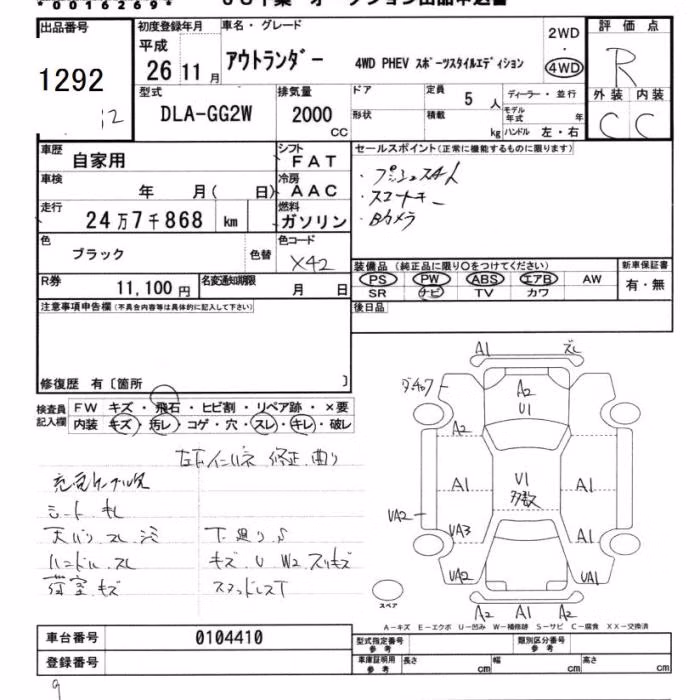 *0016269*
出品番号
1292
i2
初度登録年月
平成
26 11 月
車名・グレード
アウトランダー 4WD PHEV スポーツスタイルエディション
2WD
・
4WD
評価点
R
外装 内装
C C
型式
DLA-GG2W
排気量
2000 CC
ドア
形状
定員 5 人
積載 kg
ディーラー・並行
モデル年式 年
ハンドル 左・右
車歴 自家用
シフト FAT
車検 年 月( 日)
冷房 AAC
走行 24万7千868 km
燃料 ガソリン
色 ブラック 色替
色コード X42
R券 11,100円
名変通知期限 月 日
セールスポイント(正常に機能するものに限ります)
・プッシュスタート
・スマートキー
・Bカメラ
装備品(純正品に限り○をつけてください)
PS PW ABS エアB AW
SR ナビ TV カワ
新車保証書
有・無
後日品
注意事項申告欄(不具合内容等は具体的に記入して下さい)
修復歴 有〔箇所 〕
検査員記入欄
FW キズ・飛石・ヒビ割・リペア跡・×要
内装 キズ・汚レ・コゲ・穴・スレ・キレ・破レ
左右インハネ 修正 曲り
充電ケーブル欠
シート キレ
天バリ スレ シミ
ハンドル スレ
荷室 キズ
下廻り S
キズ U W2 スリキズ
スタッドレスT
A1 ズレ
A2
U1
A2
A1 U1 多数 A1
UA2
UA3 A1
UA2 UA1
スペア
A2 A1 A2
A-キズ E-エクボ U-凹み W-補修跡 S-サビ C-腐食 XX-交換済
車台番号 0104410
登録番号
型式指定番号 参考
類別区分番号 参考
車庫証明用 参考 長さ cm 幅 cm 高さ cm
9